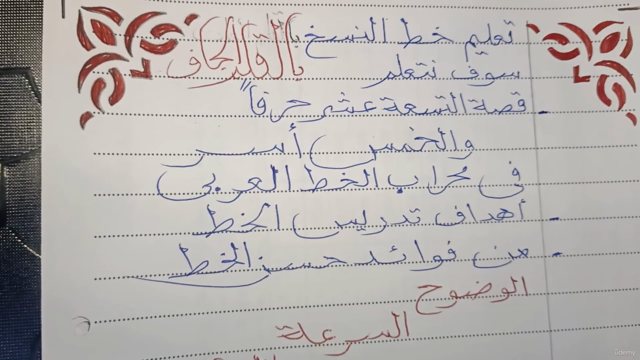 تعليم خط النسخ بالقلم الجاف
سوف نتعلم
- قصة التسعة عشر حرفاً
والخمس أسر
فى محراب الخط العربى
- أهداف تدريس الخط
- من فوائد حسن الخط
الوضوح
السرعة